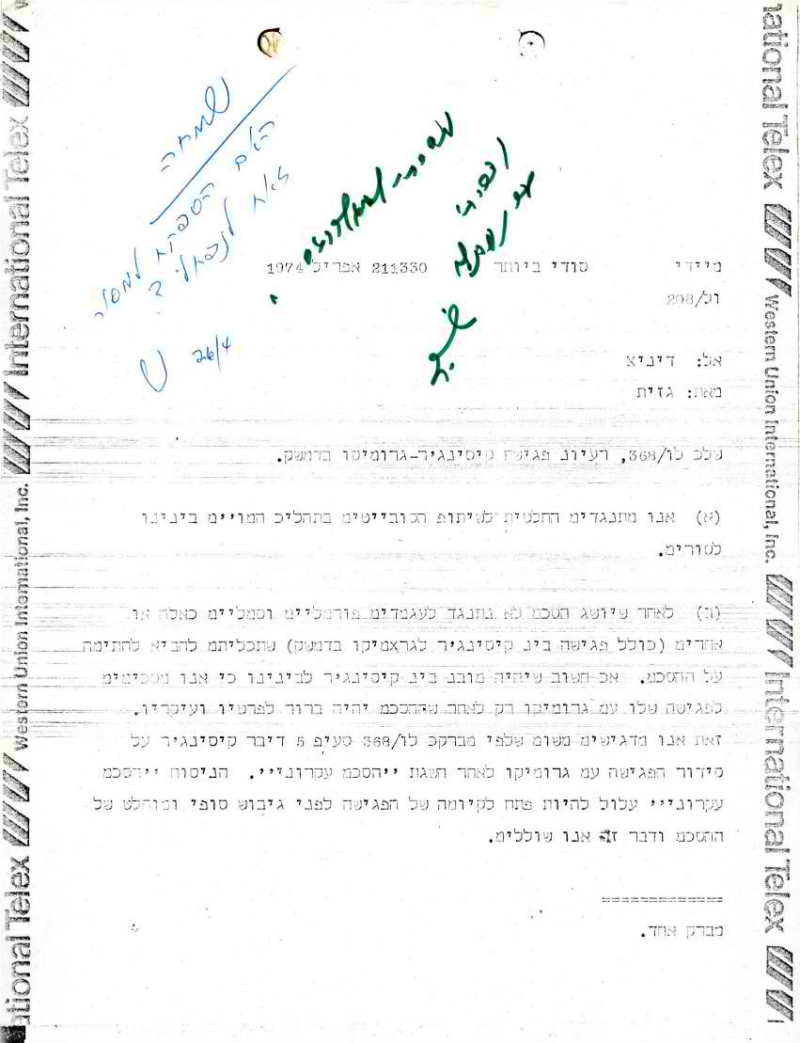 שמחה
האם הספקת למסור
זאת לנפתלי?
26/4
מיידי סודי ביותר 211330 אפריל 1974
ול/208
אל: דיניצ
מאת: גזית
שלכ לו/368, רעיונ פגישת קיסינגיר-גרומיקו בדמשק.
(א) אנו מתנגדים החלטית לשיתופ הסובייטים בתהליכ המו״מ בינינו
לסורים.
(ב) לאחר שיושג הסכמ לא נתנגד לצעדים פורמליים וסמליים כאלה או
אחרים (כולל פגישה בינ קיסינגיר לגרומיקו בדמשק) שתכליתמ להביא לחתימה
על ההסכמ. אכ חשוב שיהיה מובנ בינ קיסינגיר לבינינו כי אנו מסכימים
לפגישה שלו עמ גרומיקו רק לאחר שההסכמ יהיה ברור לפרטיו ועיקריו.
זאת אנו מדגישים משומ שלפי מברקכ לו/368 סעיפ 5 דיבר קיסינגיר על
סידור הפגישה עמ גרומיקו לאחר השגת ״הסכמ עקרוני״. הניסוח ״הסכמ
עקרוני״ עלול להיות פתח לקיומה של הפגישה לפני גיבוש סופי ומוחלט של
ההסכמ ודבר זה אנו שוללימ.
=============
מברק אחד.
International Telex
Western Union International, Inc.
International Telex
Western Union International, Inc.
International Telex